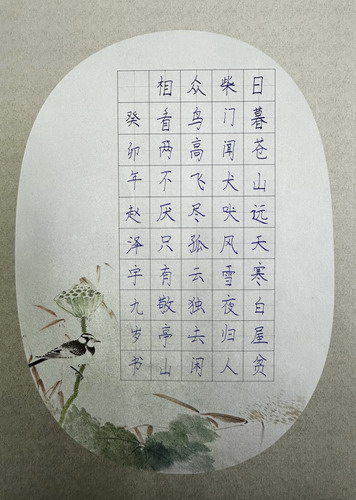 日暮苍山远天寒白屋贫
柴门闻犬吠风雪夜归人
众鸟高飞尽孤云独去闲
相看两不厌只有敬亭山
癸卯年赵泽宇九岁书